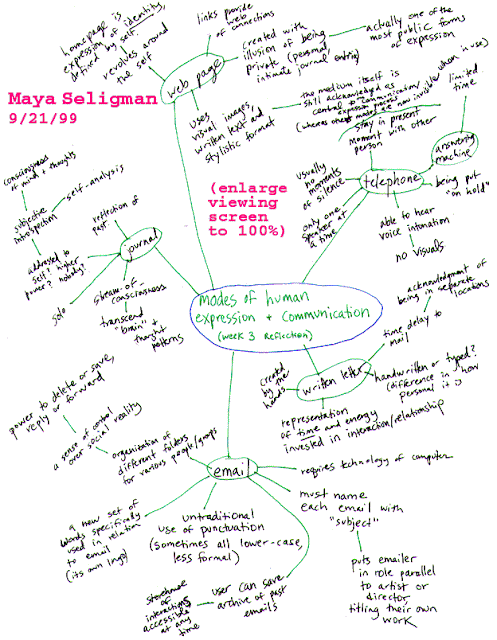 homepage is
expression of identity,
defined by self.
revolves around
the self
web page
links provide
web of connections
created with
illusion of being
private (personal
intimate journal entries)
actually one of the
most public forms
of expression
uses
visual images,
written text and
stylistic format
the medium itself is
still acknowledged as
central to communication/
expression process
when in use)
Maya Seligman
9/21/99
(enlarge
viewing
screen
to 100%)
stay in present
moment with other
person
limited
time
answering
machine
being put
"on hold"
telephone
usually
no moments
of silence
only one
speaker at
a time
able to hear
voice intonation
no visuals
consciousness
of mind + thoughts
self-analysis
subjective
introspection
reflection of
past
journal
addressed to
self? higher
power? nobody?
solo
stream-of-
consciousness
transcend
"brain" +
thought
patterns
modes of human
expression + communication
(week 3 reflection)
acknowledgment of
being in separate
locations
time delay to
mail
written letter
created
by the
hands
handwritten or typed?
(difference in how
personal it is)
representation
of time and energy
invested in interaction/relationship
power to delete or save,
reply or forward
a sense of control
over social reality
organization of
different folders
for various people/groups
email
requires technology of computer
must name
each email with
"subject"
puts emailer
in role parallel
to artist or
director
titling their own
work
a new set of
words specifically
used in relation
to email
(its own lingo)
untraditional
use of punctuation
(sometimes all lower-case,
less formal)
user can save
archive of past
emails
storehouse
of
interactions
accessible
at any
time